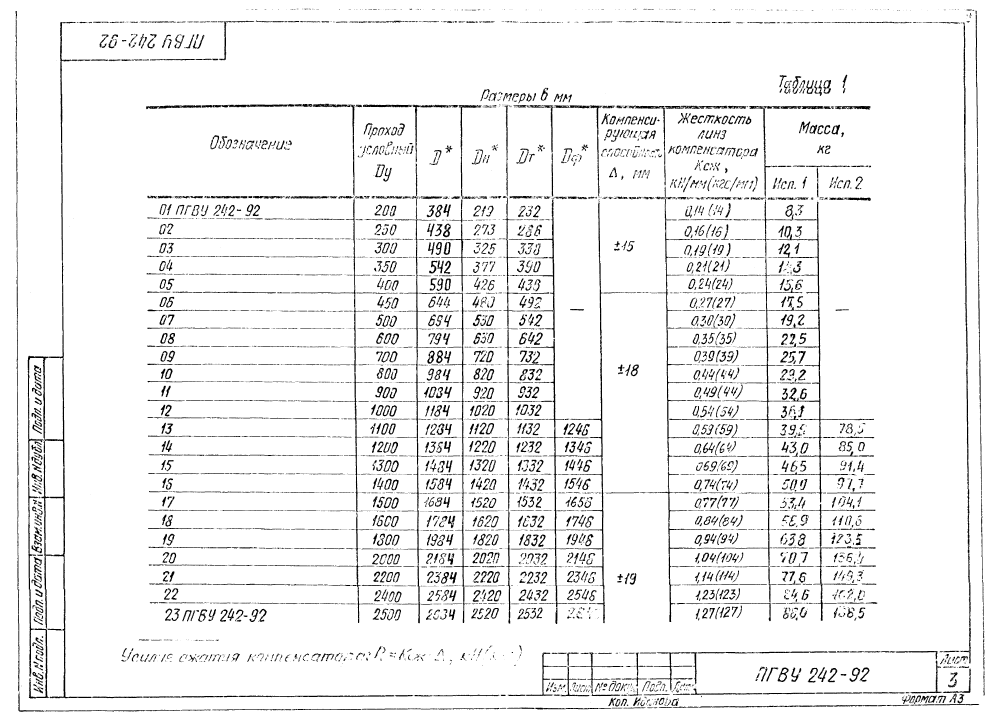 ПГВУ 242-92
Таблица 1
Размеры в мм
Обозначение | Проход условный Dу | D* | Dн* | Dт* | Dф* | Компенсирующая способность Δ, мм | Жесткость линз компенсатора Kсж, кН/мм(кгс/мм) | Масса, кг Исп. 1 | Исп. 2
01 ПГВУ 242-92 | 200 | 384 | 219 | 232 | — | ±15 | 0,14(14) | 8,3 | —
02 | 250 | 438 | 273 | 286 | 0,16(16) | 10,3
03 | 300 | 490 | 325 | 338 | 0,19(19) | 12,1
04 | 350 | 542 | 377 | 390 | 0,21(21)
05 | 400 | 590 | 426 | 439 | 0,24(24) | 15,6
06 | 450 | 644 | 480 | 492 | ±18 | 0,27(27) | 17,5
07 | 500 | 694 | 530 | 542 | 0,30(30) | 19,2
08 | 600 | 794 | 630 | 642 | 0,35(35) | 22,5
09 | 700 | 884 | 720 | 732 | 0,39(39) | 25,7
10 | 800 | 984 | 820 | 832 | 0,44(44) | 29,2
11 | 900 | 1084 | 920 | 932 | 0,49(44) | 32,6
12 | 1000 | 1184 | 1020 | 1032 | 0,54(54) | 36,1
13 | 1100 | 1284 | 1120 | 1132 | 1246 | 0,59(59) | 78,5
14 | 1200 | 1384 | 1220 | 1232 | 1346 | 0,64(64) | 43,0 | 85,0
15 | 1300 | 1484 | 1320 | 1332 | 1446 | 0,69(69) | 46,5 | 91,4
16 | 1400 | 1584 | 1420 | 1432 | 1546 | 0,74(74) | 50,0 | 97,7
17 | 1500 | 1684 | 1520 | 1532 | 1656 | ±19 | 0,77(77) | 53,4 | 104,1
18 | 1600 | 1784 | 1620 | 1632 | 1746 | 0,84(84) | 56,9 | 110,6
19 | 1800 | 1984 | 1820 | 1832 | 1946 | 0,94(94) | 63,8 | 123,5
20 | 2000 | 2184 | 2020 | 2032 | 2146 | 1,04(104) | 70,7 | 136,4
21 | 2200 | 2384 | 2220 | 2232 | 2346 | 1,14(114) | 77,6 | 149,3
22 | 2400 | 2584 | 2420 | 2432 | 2546 | 1,23(123) | 84,6 | 162,0
23 ПГВУ 242-92 | 2500 | 2520 | 2532 | 1,27(127) | 168,5
Усилия сжатия компенсатора: P = Kсж · Δ, кН
Инв.№подл. Подп. и дата Взам.инв.№ Инв.№дубл. Подп. и дата
Изм. Лист № докум. Подп. Дата
ПГВУ 242-92
Лист
3
Коп.
Формат А3